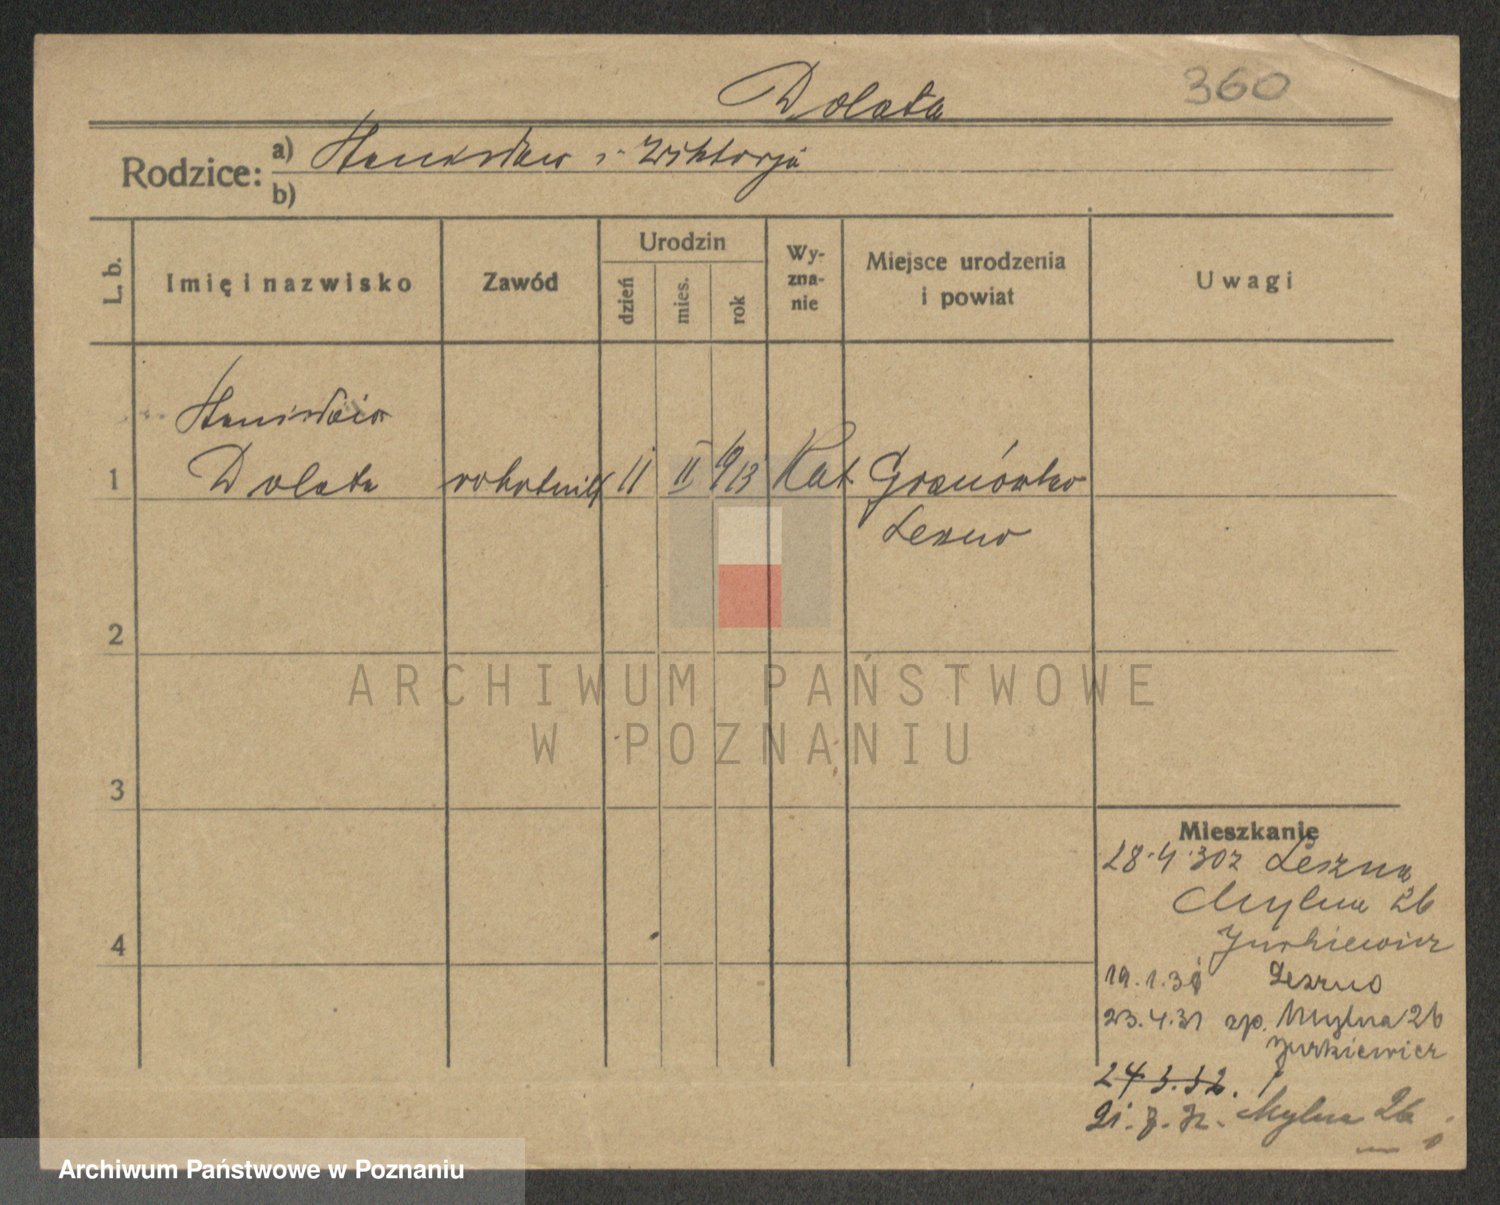 Dolata 360
Rodzice: a) Stanisław i Wiktorja
b)
L. b. Imię i nazwisko Zawód Urodzin dzień mies. rok Wy-zna-nie Miejsce urodzenia i powiat Uwagi
Stanisław
1 Dolata robotnik 11 II 913 Kat Granówko
Leszno
2
ARCHIWUM PAŃSTWOWE
W POZNANIU
3
Mieszkanie
28.4.30 z Leszna
Mylna 26
4 Jurkiewicz
19.1.31 Leszno
23.4.31 zp. Mylna 26
Jurkiewicz
24 3.32.
Mylna 26
Archiwum Państwowe w Poznaniu